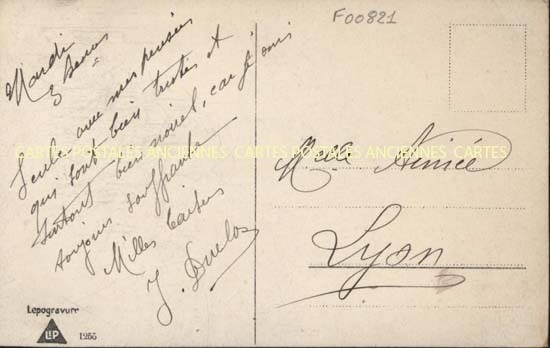 F00821
Mardi
3 heures
Seule avec mes pensées
qui sont bien tristes et
surtout bien noires, car je suis
toujours souffrante
Milles baisers
J. Duclos
Melle Aimée
Lyon
CARTES POSTALES ANCIENNES CARTES POSTALES ANCIENNES CARTES
Lepogravure
LEP
1255